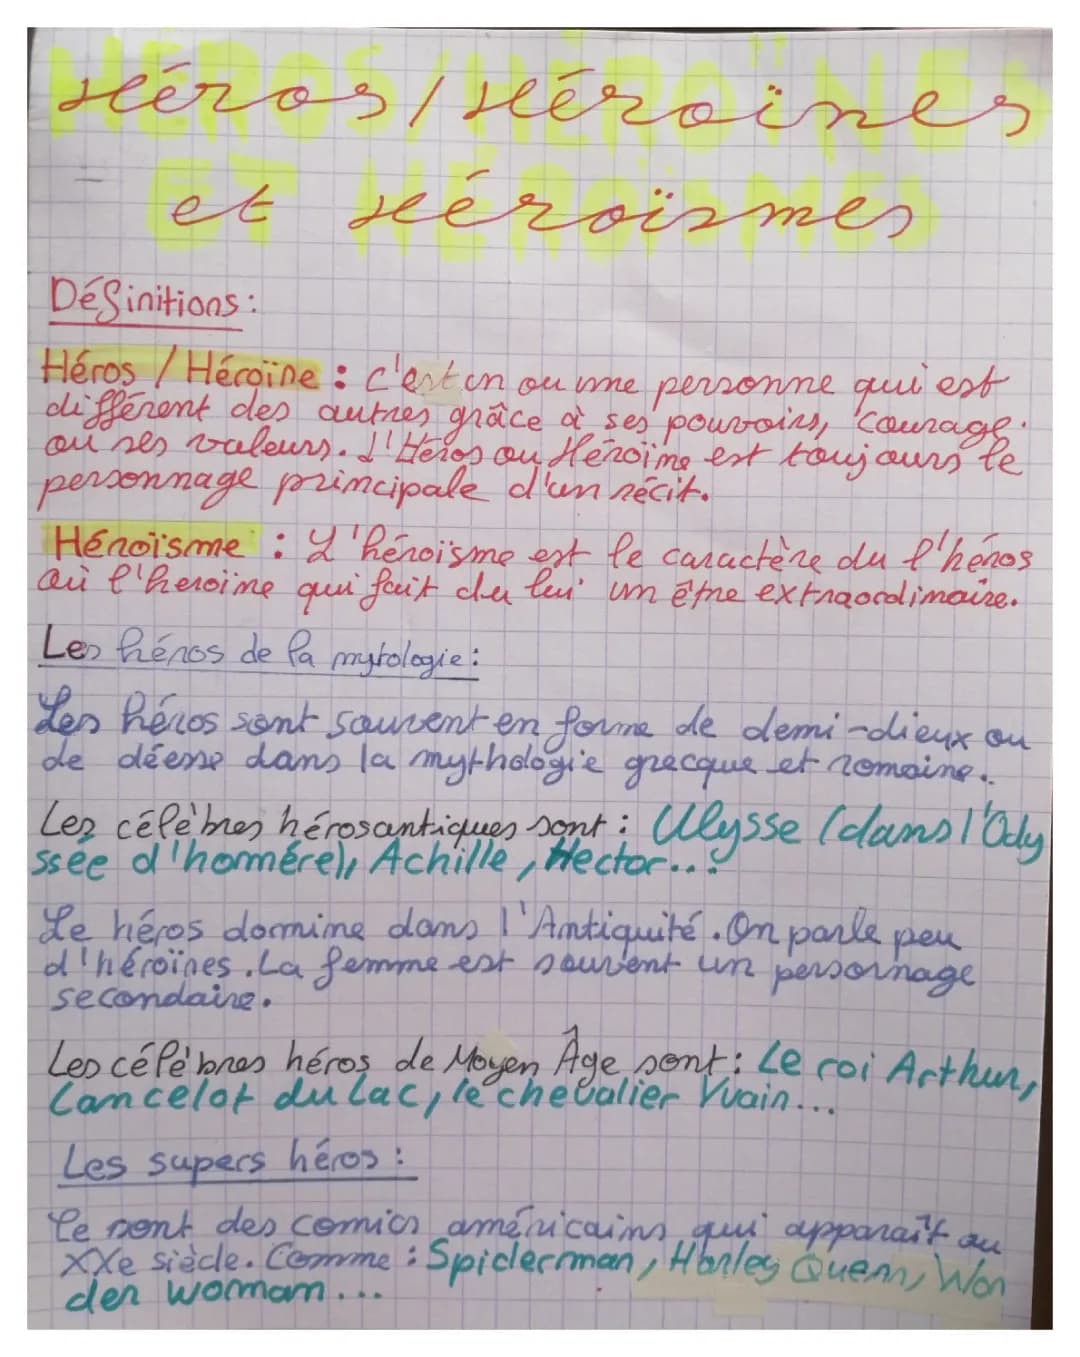 Héros / Héroïnes
et Héroïsmes
Définitions :
Héros / Héroïne : c'est un ou une personne qui est
différent des autres grâce à ses pouvoirs, courage.
ou ses valeurs. L'Héros ou Héroïne est toujours le
personnage principale d'un récit.
Héroïsme : L'héroïsme est le caractère du l'héros
où l'heroïne qui fait du lui un être extraordinaire.
Les héros de la mytologie :
Les héros sont souvent en forme de demi-dieux ou
de déesse dans la mythologie grecque et romaine..
Les célèbres héros antiques sont : Ulysse (dans l'Ody
ssée d'homére), Achille, Hector...
Le héros domine dans l'Antiquité. On parle peu
d'héroïnes. La femme est souvent un personnage
secondaire.
Les célèbres héros de Moyen Âge sont : Le roi Arthur,
Lancelot du Lac, le chevalier Yvain...
Les supers héros :
Ce sont des comics américains qui apparaît au
XXe siècle. Comme : Spiderman, Harley Quenn, Won
der womam...